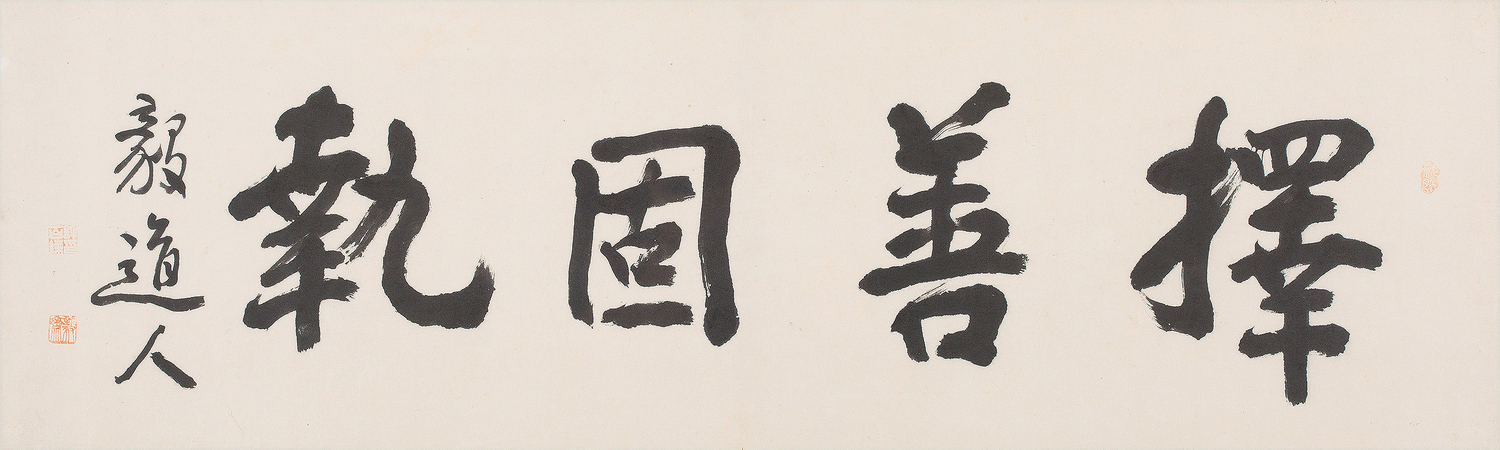 擇善固執
毅道人